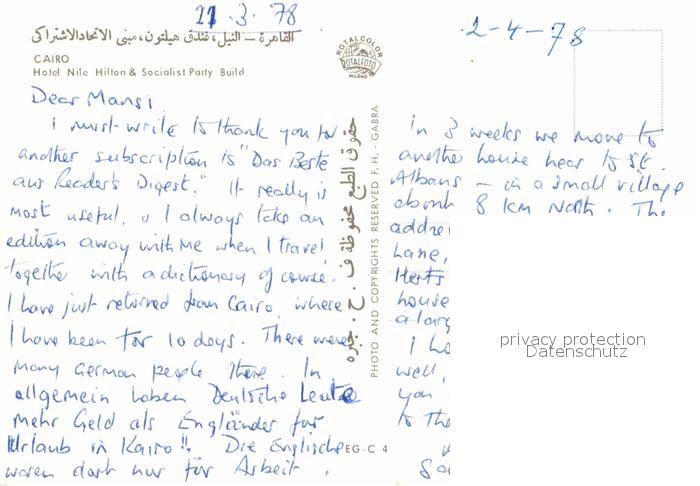 21.3.78
القاهرة – النيل، فندق هيلتون، مبنى الاتحاد الاشتراكى
CAIRO
Hotel Nile Hilton & Socialist Party Build
Dear Mansi
I must write to thank you for
another subscription to "Das Beste
aus Reader's Digest." It really is
most useful, & I always take an
edition away with me when I travel
together with a dictionary of course.
I have just returned from Cairo, where
I have been for 10 days. There were
many German people there. In
allgemein haben Deutsche Leute
mehr Geld als Engländer für
Urlaub in Kairo!! Die Englische
waren dort nur für Arbeit.
ROTALCOLOR
ROTALFOTO
MILANO
حقوق الطبع محفوظة ف . ح . جبره
PHOTO AND COPYRIGHTS RESERVED F.H. - GABRA
EG-C 4
2-4-78
in 3 weeks we move to
another house near to St.
Albans – in a small village
about 8 km North. The
addre
Lane,
Herts
house
a larg
I ha
well,
you
to the
privacy protection
Datenschutz